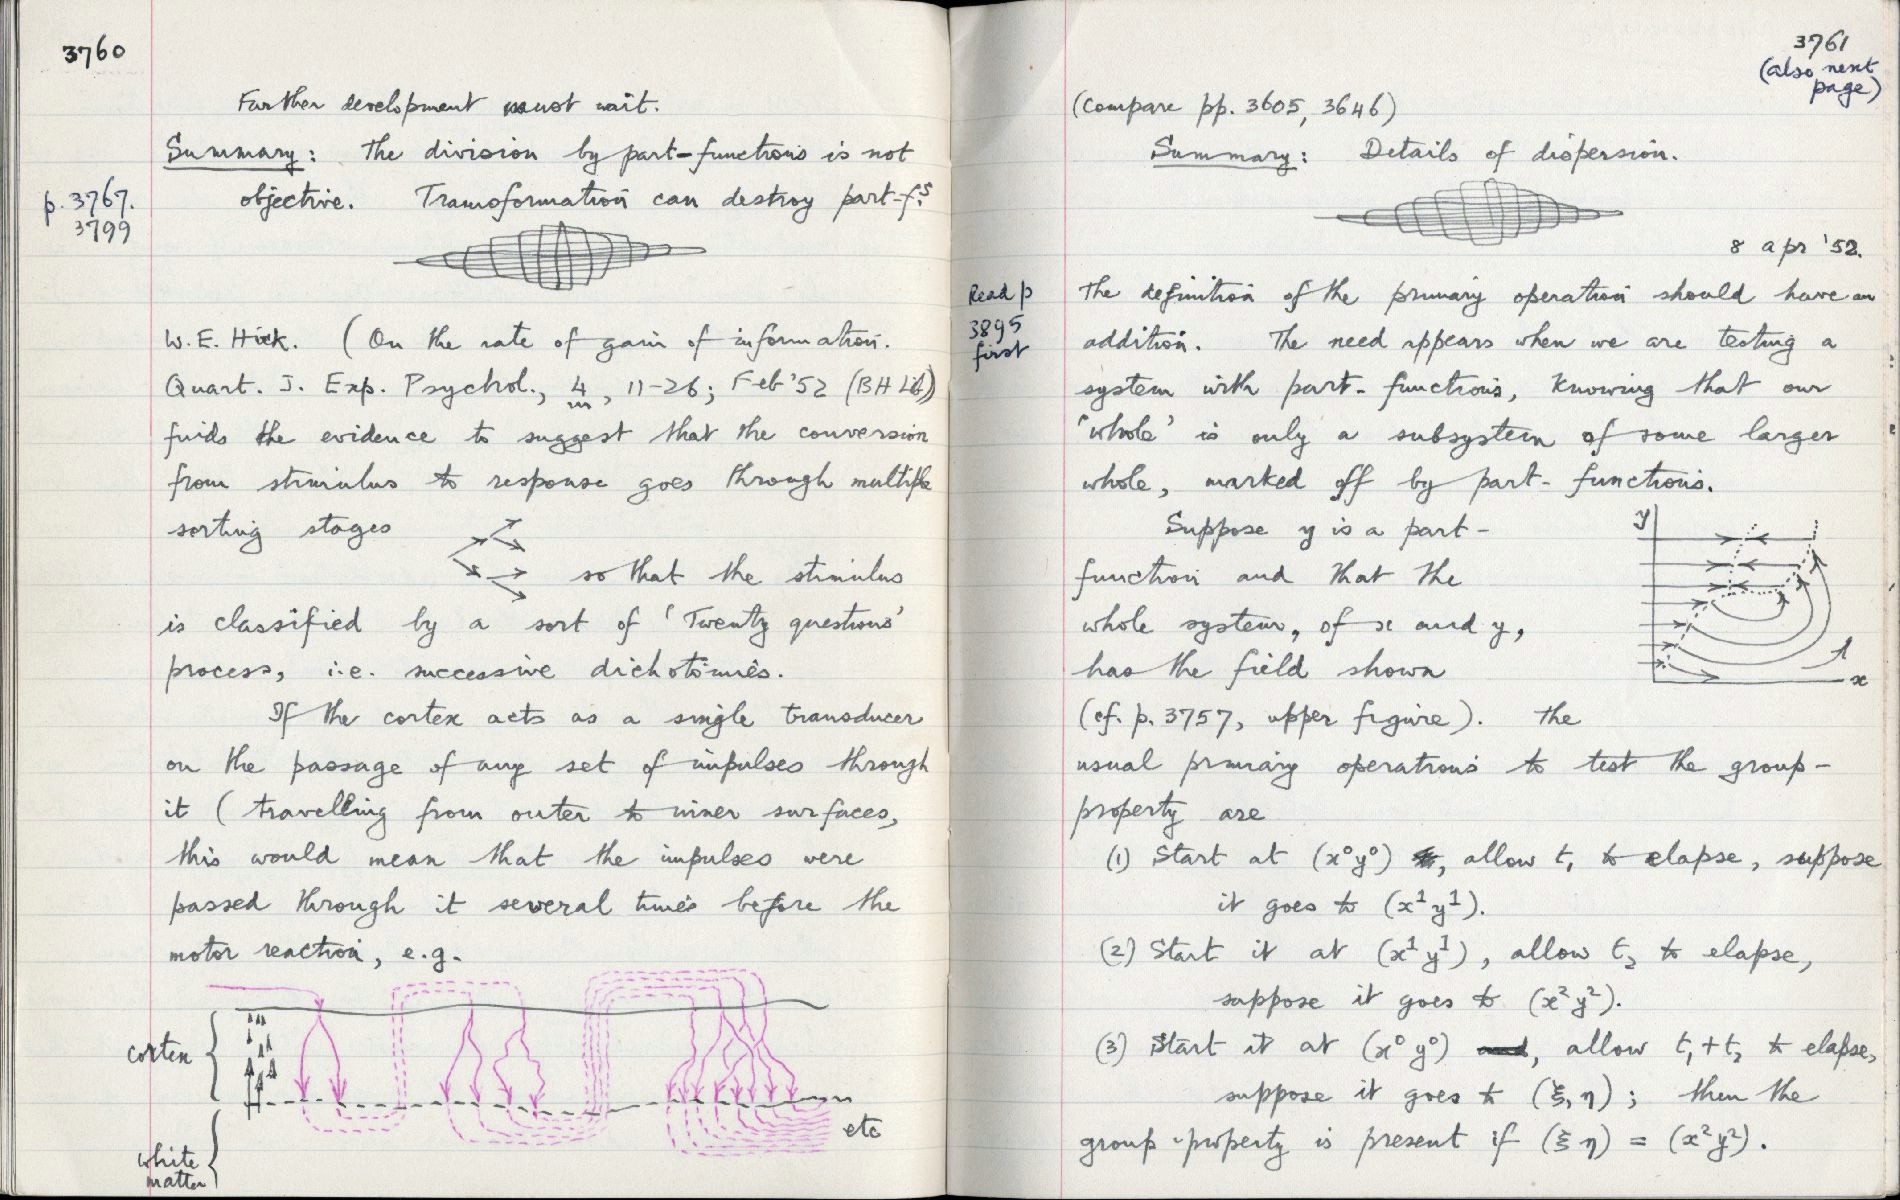 3760
Further development must wait.
Summary: The division by part-functions is not
objective. Transformation can destroy part-fˢ.
p. 3767.
3799
W. E. Hick. (On the rate of gain of information.
Quart. J. Exp. Psychol., 4, 11-26; Feb '52 (BH Lib))
finds the evidence to suggest that the conversion
from stimulus to response goes through multiple
sorting stages
so that the stimulus
is classified by a sort of 'Twenty questions'
process, i.e. successive dichotomies.
If the cortex acts as a single transducer
on the passage of any set of impulses through
it (travelling from outer to inner surfaces,
this would mean that the impulses were
passed through it several times before the
motor reaction, e.g.
cortex
white
matter
etc
3761
(also next
page)
(Compare pp. 3605, 3646)
Summary: Details of dispersion.
8 apr '52.
Read p
3895
first
The definition of the primary operation should have an
addition. The need appears when we are testing a
system with part-functions, knowing that our
'whole' is only a subsystem of some larger
whole, marked off by part-functions.
Suppose y is a part-
function and that the
whole system, of x and y,
has the field shown
y
x
(cf. p. 3757, upper figure). The
usual primary operations to test the group-
property are
(1) Start at (x⁰y⁰), allow t₁ to elapse, suppose
it goes to (x¹y¹).
(2) Start it at (x¹y¹), allow t₂ to elapse,
suppose it goes to (x²y²).
(3) Start it at (x⁰y⁰), allow t₁+t₂ to elapse,
suppose it goes to (ξ, η); then the
group-property is present if (ξ η) = (x²y²).